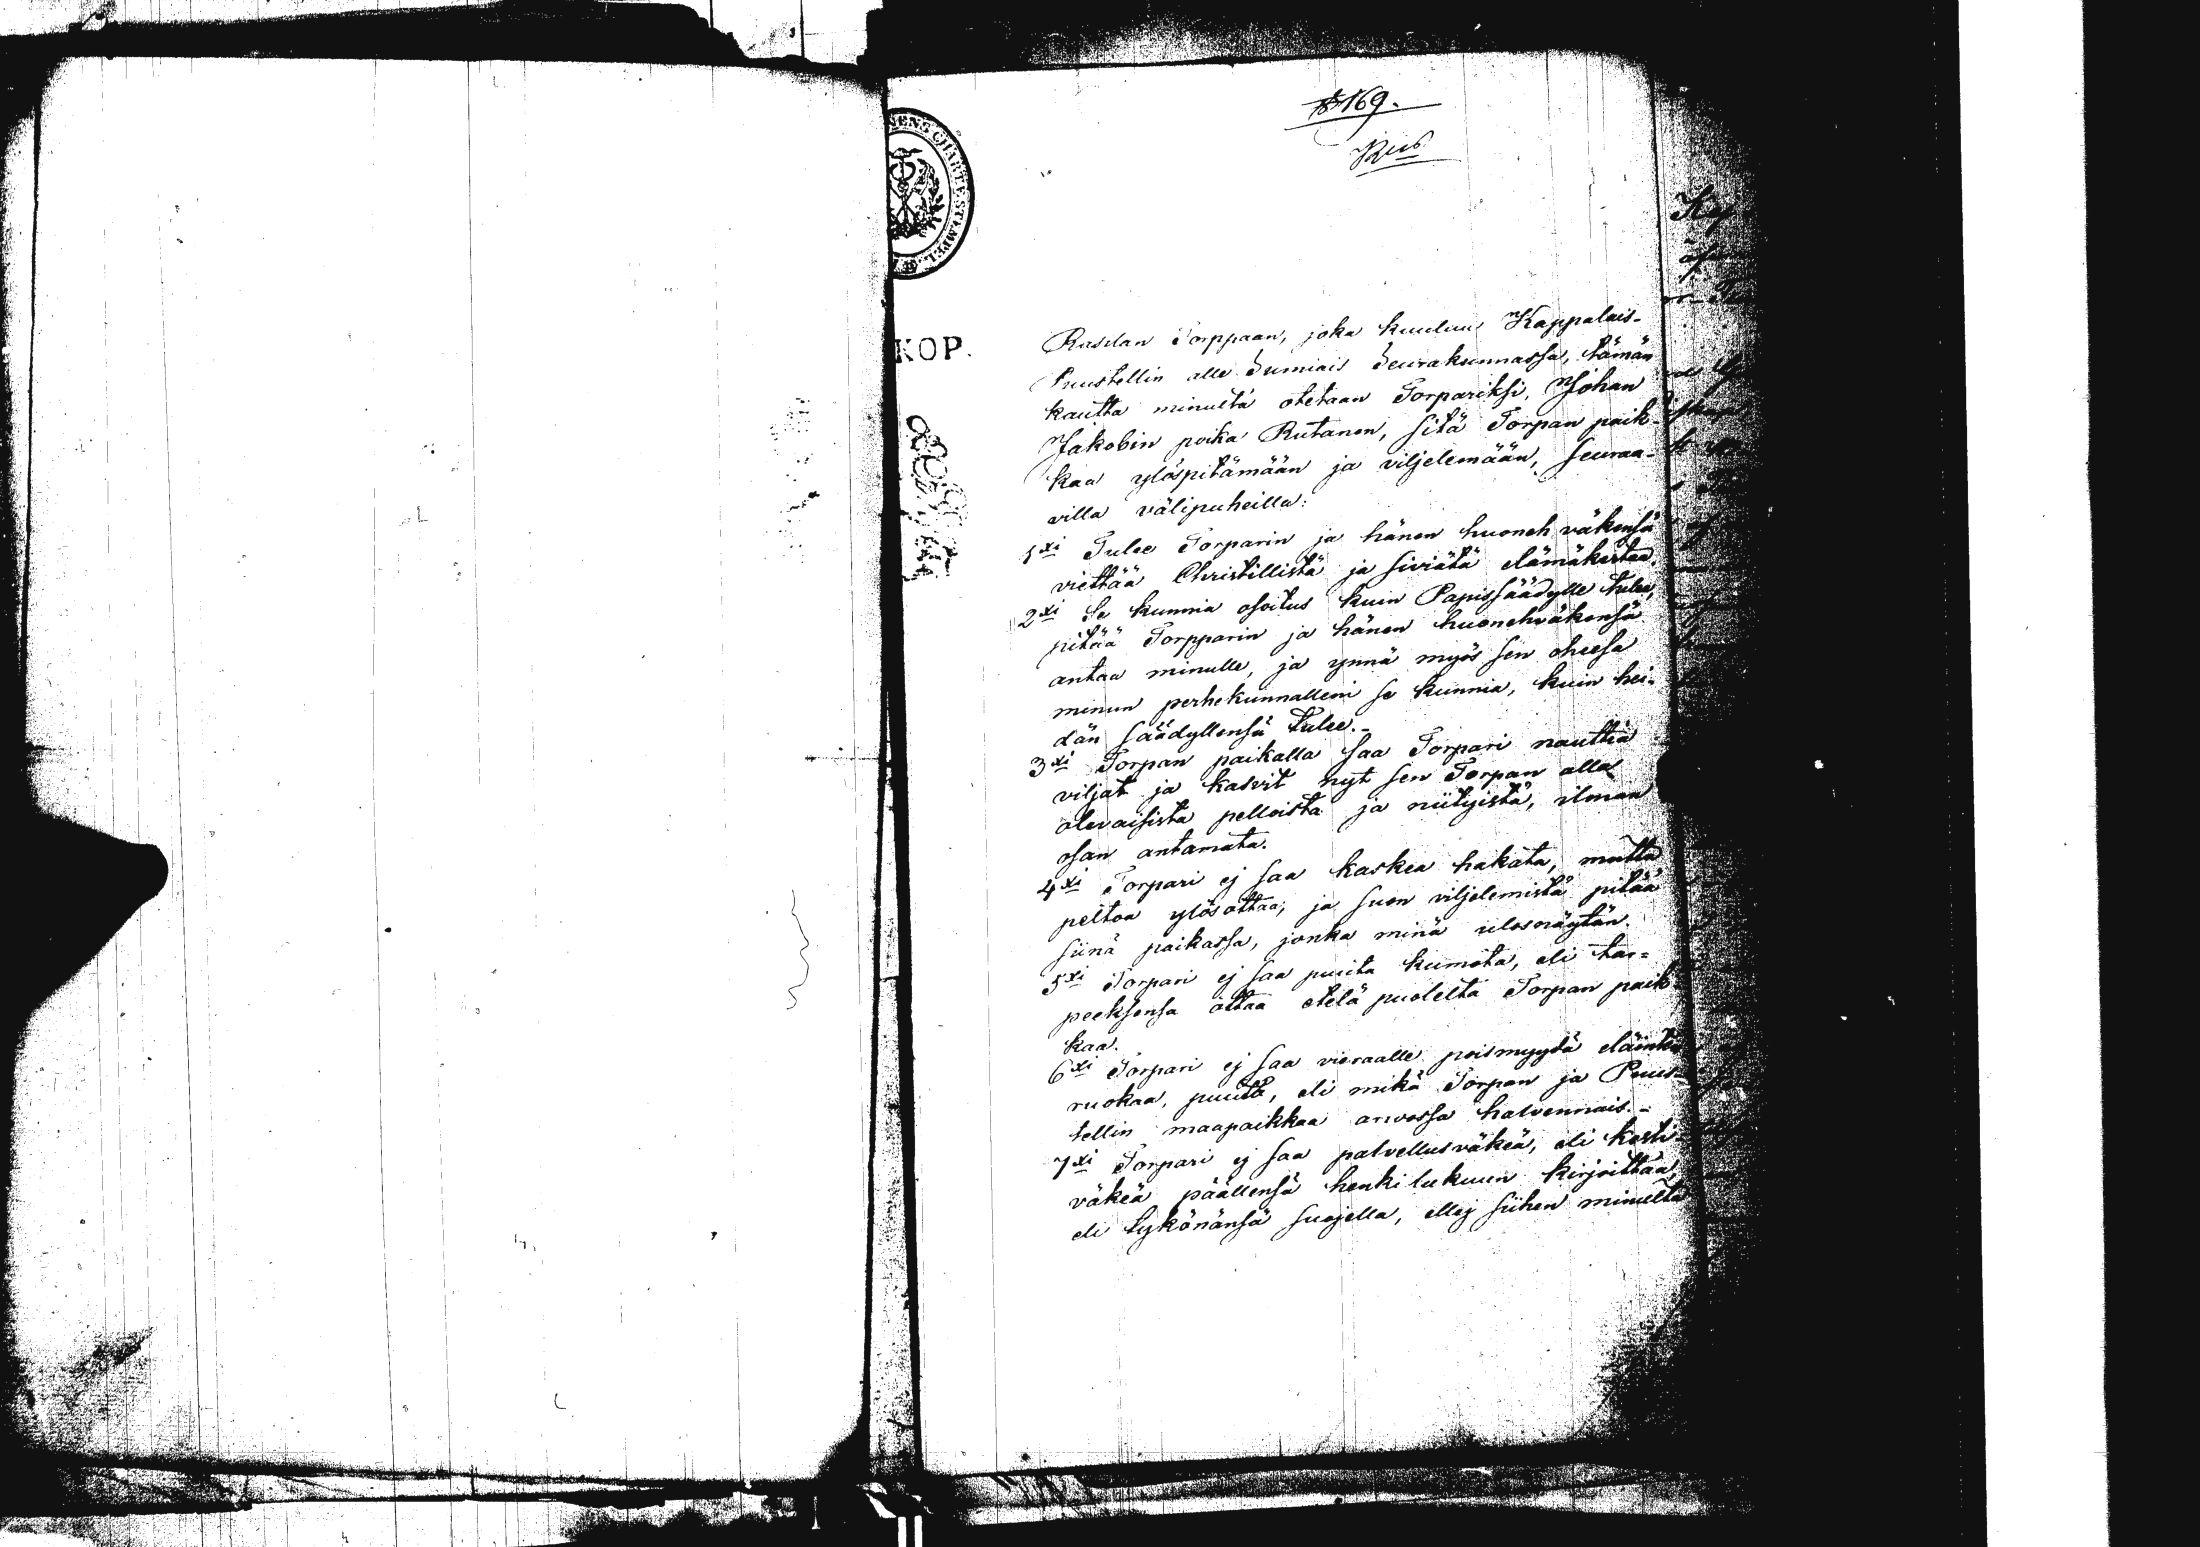 169.
KOP.
Rasilan Torppaan, joka kuuluu Kappalais-
Puustellin alle Sumiais Seurakunnassa, tämän
kautta minulta otetaan Torpariksi, Johan
Jakobin poika Rutanen, sitä Torpan paik-
kaa ylöspitämään ja viljelemään, seuraa-
villa välipuheilla:
1xi Tulee Torparin ja hänen huoneh väkensä
viettää Christillistä ja siviätä elämäkertaa.
2xi Se kunnia osoitus kuin Papissäädylle tulee,
pitää Torpparin ja hänen huonehväkensä
antaa minulle, ja ynnä myös sen ohessa
minun perhekunnalleni se kunnia, kuin hei-
dän säädyllensä tulee.-
3xi Torpan paikalla saa Torpari nauttia
viljat ja kasvit nyt sen Torpan alla
olevaisista pelloista ja niityistä, ilman
osan antamata.
4xi Torpari ej saa kaskea hakata, mutta
peltoa ylösottaa, ja suon viljelemistä pitää
siinä paikassa, jonka minä ulosnäytän.
5xi Torpari ej saa puita kumota, eli tar=
peeksensa ottaa etelä puolelta Torpan paik-
kaa.
6xi Torpari ej saa vieraalle poismyydä eläinten
ruokaa, puuta, eli mikä Torpan ja Puus-
tellin maapaikkaa arvossa halvennais.-
7xi Torpari ej saa palvellusväkeä, eli kesti-
väkeä päällensä henki lukuun kirjoittaa,
eli tykönänsä suojella, ellej siihen minulta